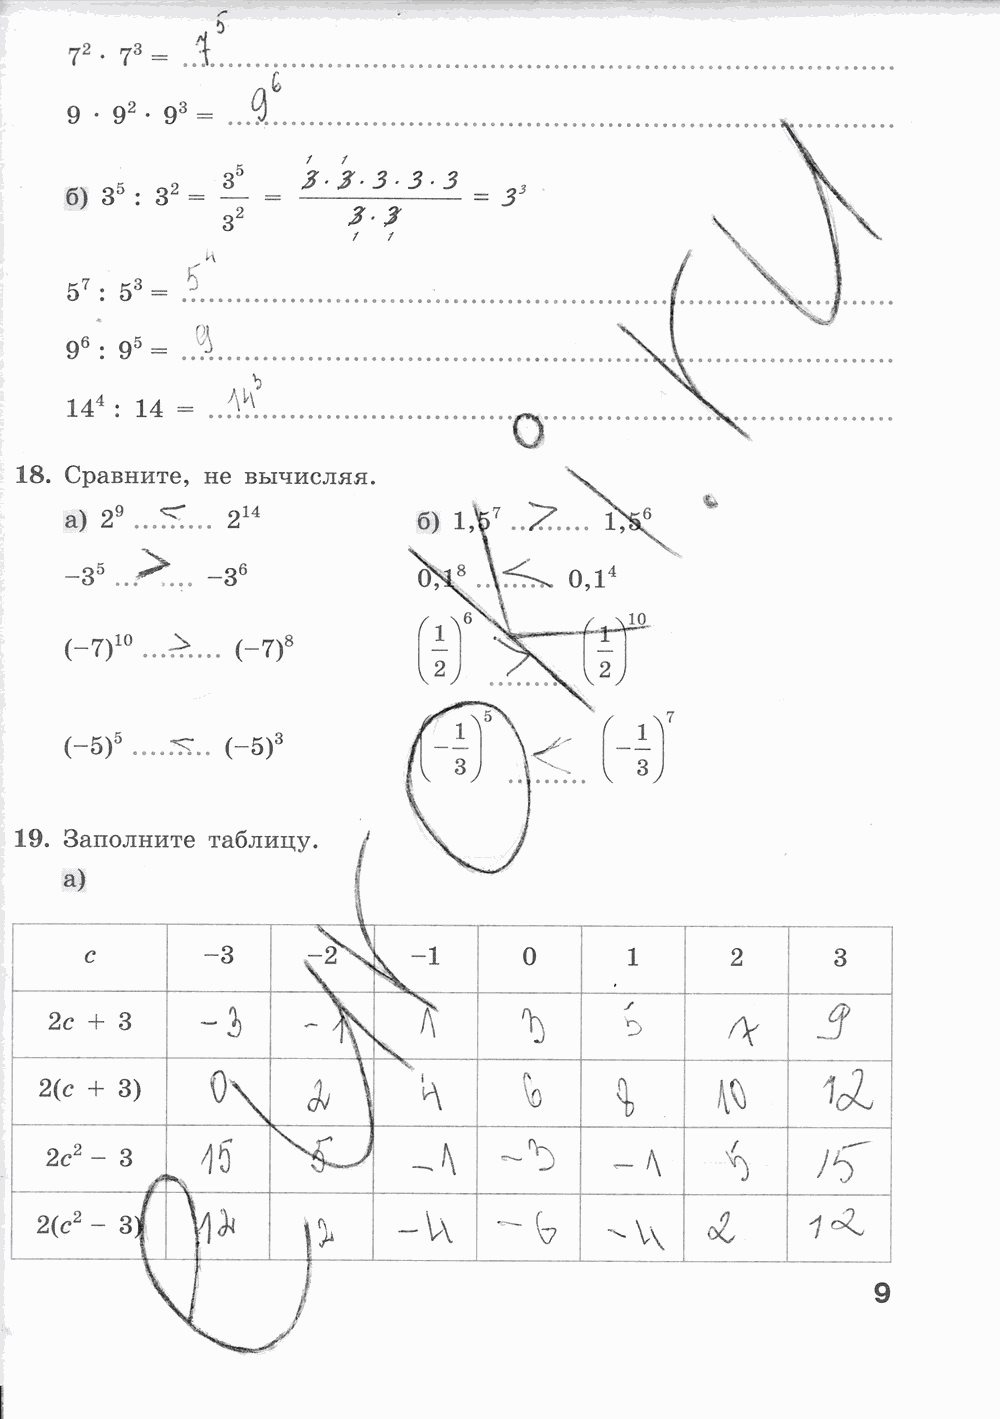 7² · 7³ = 7⁵
9 · 9² · 9³ = 9⁶
б) 3⁵ : 3² = 3⁵/3² = 3 · 3 · 3 · 3 · 3 / 3 · 3 = 3³
5⁷ : 5³ = 5⁴
9⁶ : 9⁵ = 9
14⁴ : 14 = 14³
18. Сравните, не вычисляя.
а) 2⁹ < 2¹⁴ б) 1,5⁷ > 1,5⁶
−3⁵ > −3⁶ 0,1⁸ < 0,1⁴
(−7)¹⁰ > (−7)⁸ (1/2)⁶ > (1/2)¹⁰
(−5)⁵ < (−5)³ (−1/3)⁵ < (−1/3)⁷
19. Заполните таблицу.
а)
c −3 −2 −1 0 1 2 3
2c + 3 −3 −1 1 3 5 7 9
2(c + 3) 0 2 4 6 8 10 12
2c² − 3 15 5 −1 −3 −1 5 15
2(c² − 3) 12 2 −4 −6 −4 2 12
9